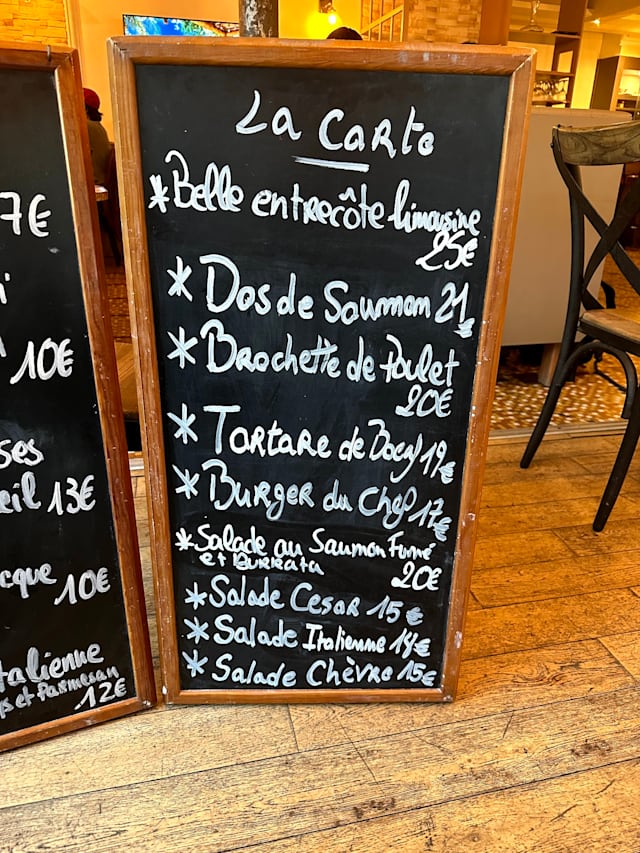 7€
10€
ses
eil 13€
cque 10€
talienne
ps et Parmesan
12€
La Carte
* Belle entrecôte limousine
25€
* Dos de Saumon 21€
* Brochette de Poulet
20€
* Tartare de Boeuf 19€
* Burger du Chef 17€
* Salade au Saumon Fumé
et Burrata 20€
* Salade Cesar 15€
* Salade Italienne 14€
* Salade Chèvre 15€